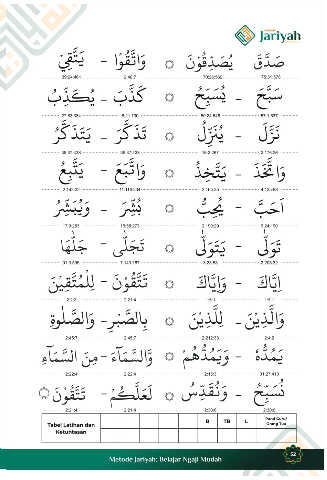 Jariyah
صَدَّقَ - يُصَدِّقُوْنَ ۞ وَاتَّقُوْا - يَتَّقِيْ
سَبَّحَ - يُسَبِّحُ ۞ كَذَّبَ - يُكَذِّبُ
نَزَّلَ - يُنَزِّلُ ۞ تَذَكَّرَ - يَتَذَكَّرُ
وَاتَّخَذَ - يَتَّخِذُ ۞ وَاتَّبَعَ - يَتَّبِعُ
اَحَبَّ - يُحِبُّ ۞ بُشِّرَ - وَيُبَشِّرُ
تَوَلّٰى - يَتَوَلّٰى ۞ تَجَلّٰى - جَلّٰىهَا
اِيَّاكَ - وَاِيَّاكَ ۞ تَتَّقُوْنَ - لِلْمُتَّقِيْنَ
وَالَّذِيْنَ - لِلَّذِيْنَ ۞ بِالصَّبْرِ - وَالصَّلٰوةِ
يَمُدُّهٗ - وَيَمُدُّهُمْ ۞ وَالسَّمَآءَ - مِنَ السَّمَآءِ
نُسَبِّحُ - وَنُقَدِّسُ ۞ لَعَلَّكُمْ - تَتَّقُوْنَ ۞
Tabel Latihan dan Ketuntasan B TB L Paraf Guru/ Orang Tua
52
Metode Jariyah: Belajar Ngaji Mudah